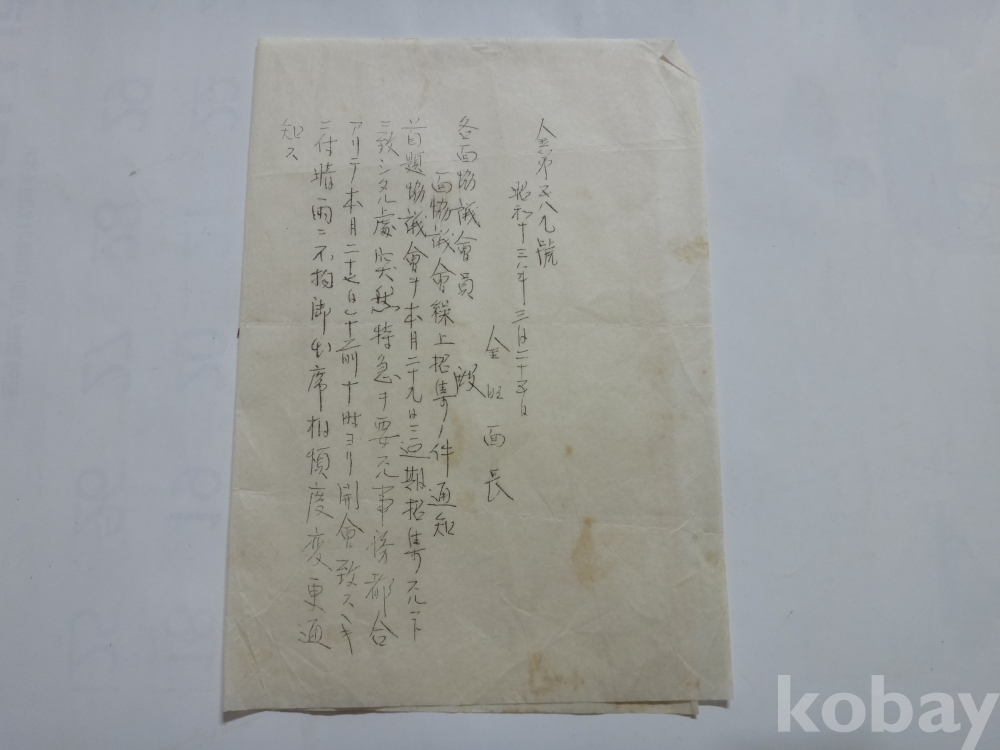 金第五八九號
昭和十三年三月二十五日
金旺面長
各面協議會員 殿
面協議會繰上招集ノ件通知
首題協議會ヲ本月二十九日ニ延期招集
ニ致シタル處突然特急ヲ要 事務都合
アリテ本月二十七日午前十時ヨリ開會致スヘキ
ニ付晴雨ニ不拘御出席相煩度変更通
知ス
kobay